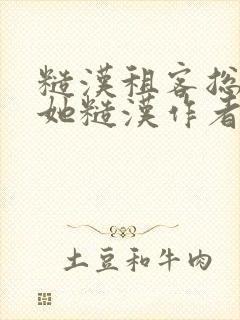 糙漢租客捴
她糙漢作者
土豆和牛肉